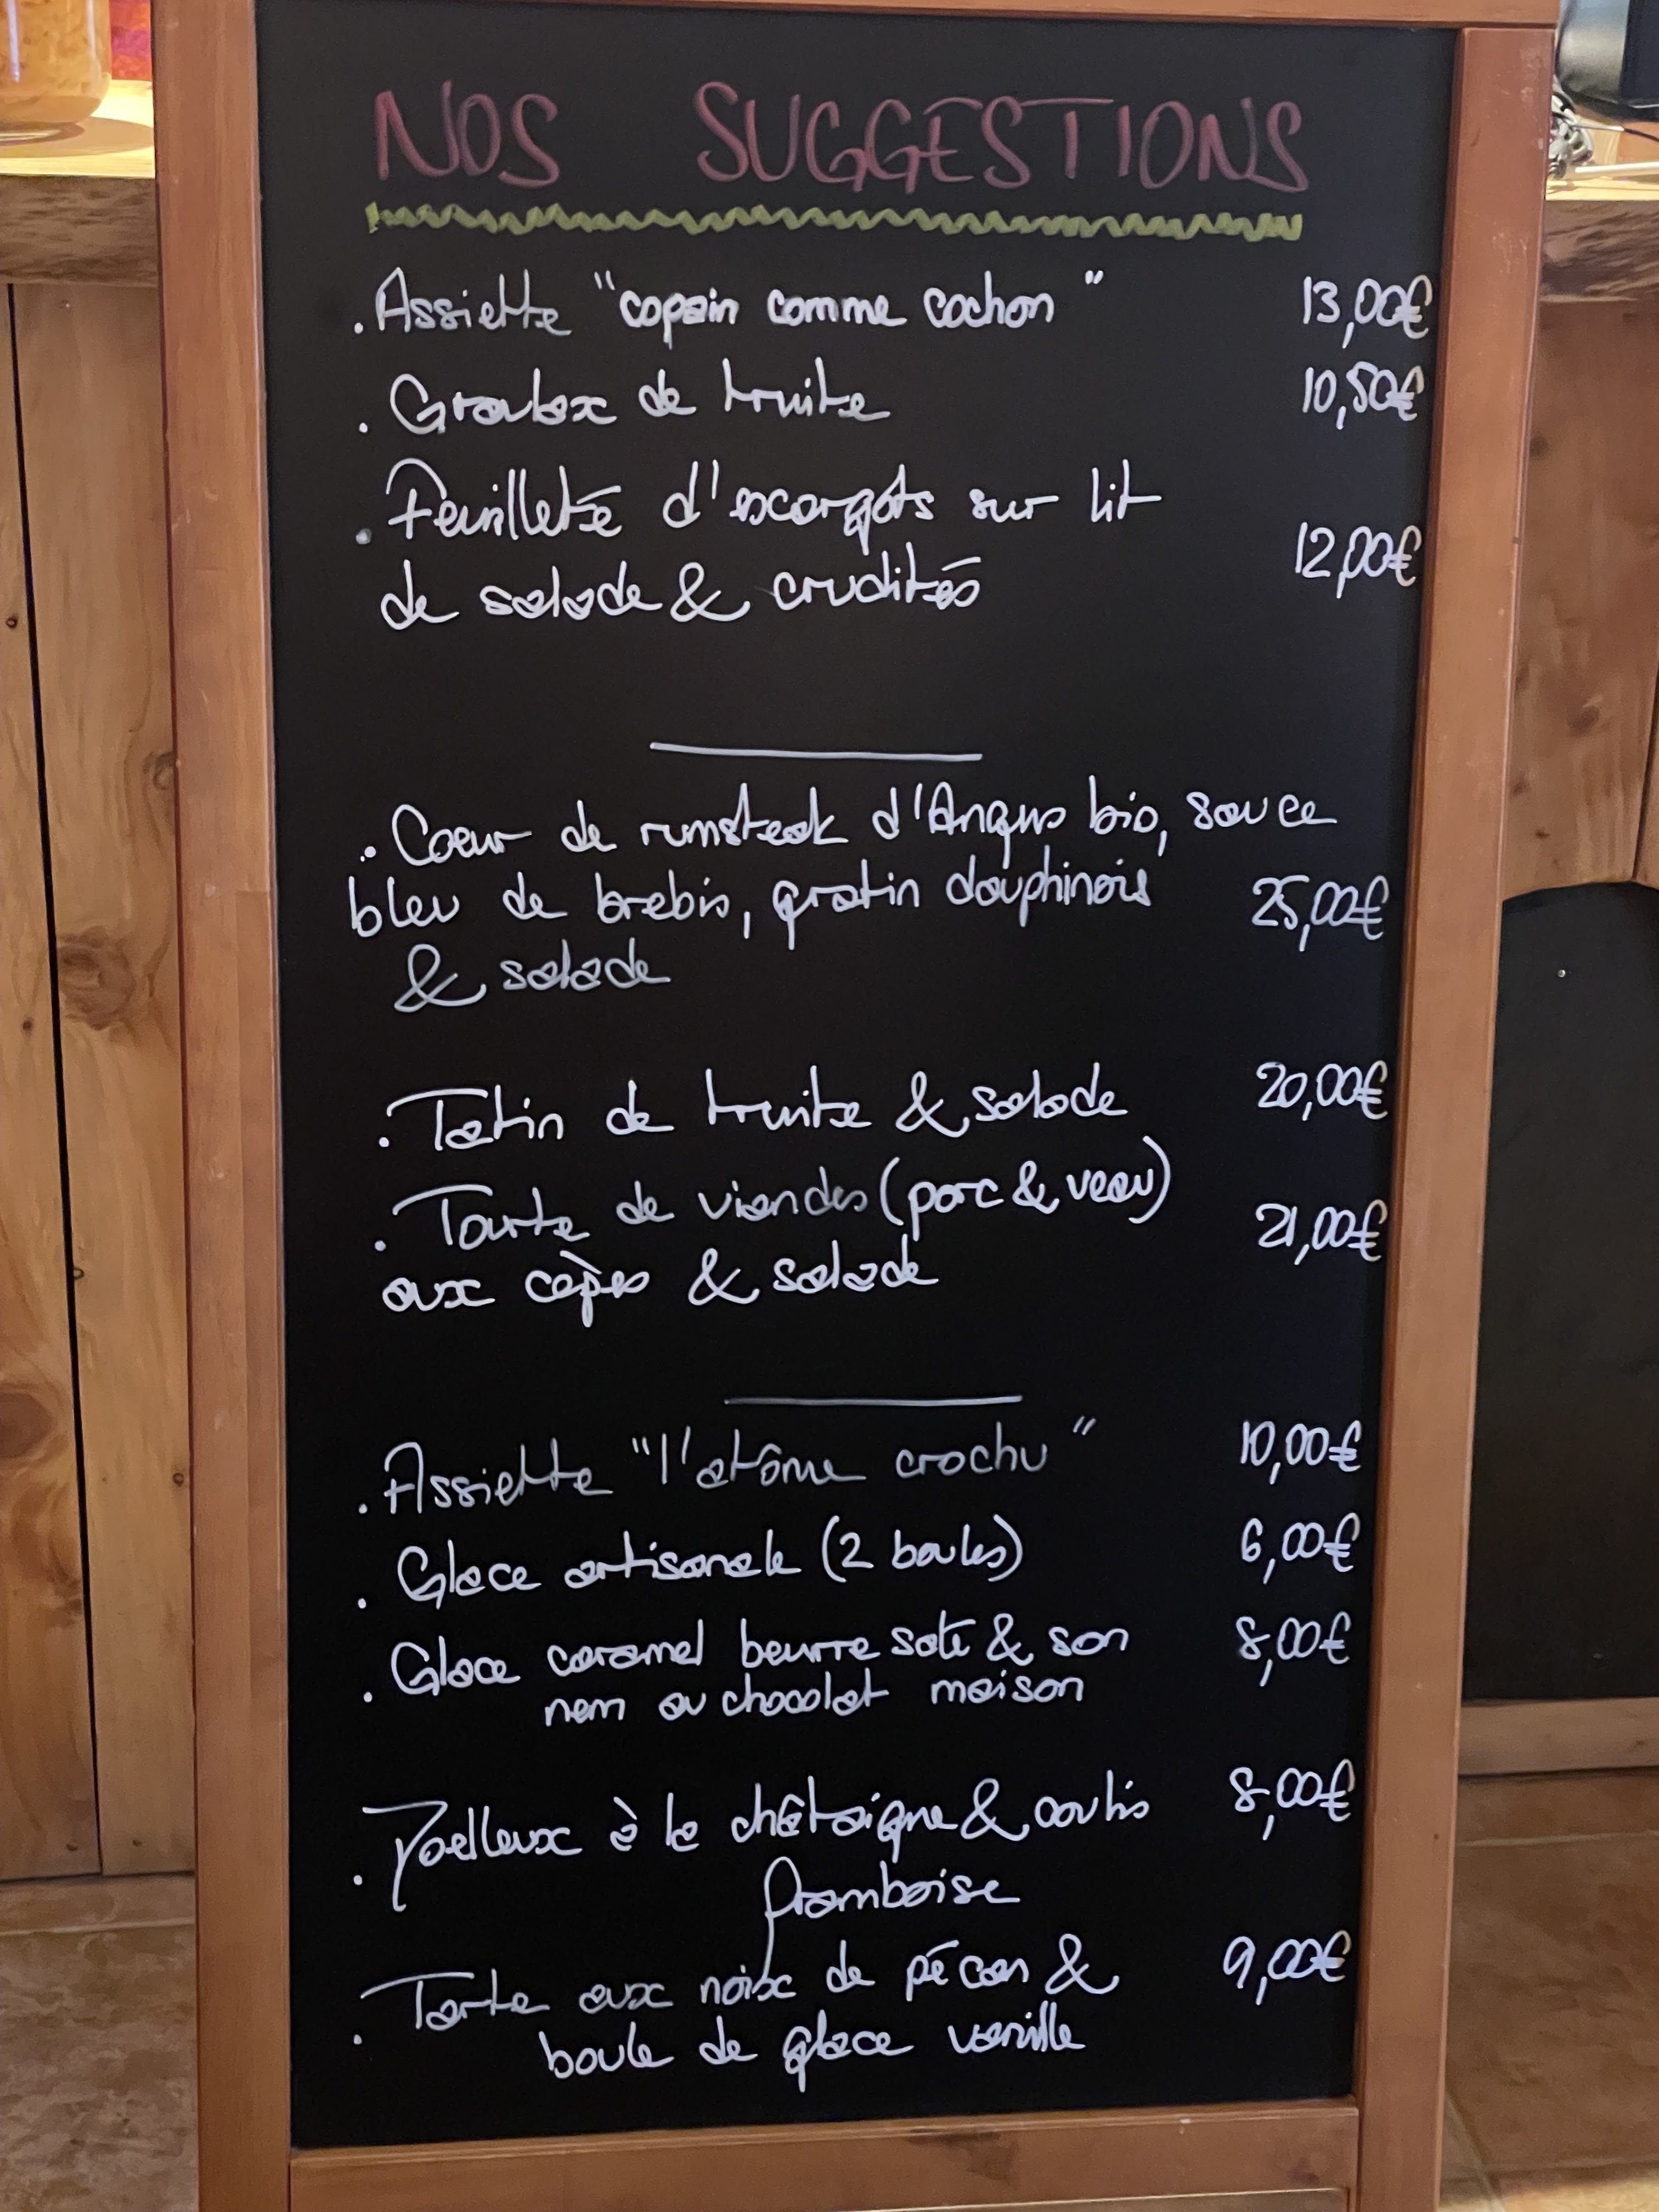 NOS SUGGESTIONS
. Assiette "copain comme cochon" 13,00€
. Gravlax de truite 10,50€
. Feuilleté d'escargots sur lit
de salade & crudités 12,00€
. Coeur de rumsteak d'Angus bio, sauce
bleu de brebis, gratin dauphinois 25,00€
& salade
. Tatin de truite & salade 20,00€
. Tourte de viandes (porc & veau)
aux cèpes & salade 21,00€
. Assiette "l'atôme crochu" 10,00€
. Glace artisanale (2 boules) 6,00€
. Glace caramel beurre salé & son 8,00€
nem au chocolat maison
. Moelleux à la châtaigne & coulis 8,00€
framboise
. Tarte aux noix de pécan & 9,00€
boule de glace vanille